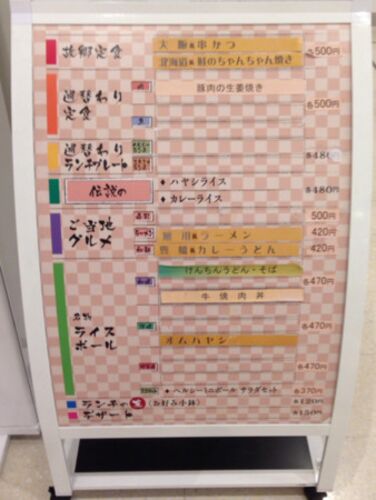 故郷定食
大阪風串かつ
北海道風鮭のちゃんちゃん焼き
各500円
週替わり
定食
豚肉の生姜焼き
各500円
週替わり
ランチプレート
各480円
伝説の
◆ハヤシライス
◆カレーライス
各480円
ご当地
グルメ
500円
旭川風ラーメン
420円
豊橋風カレーうどん
420円
ライス
ボール
けんちんうどん・そば
各470円
牛焼肉丼
各470円
オムハヤシ
各470円
◆ヘルシーミニボール サラダセット
各370円
ランチの友(お好み小鉢)
各120円
デザート
各150円